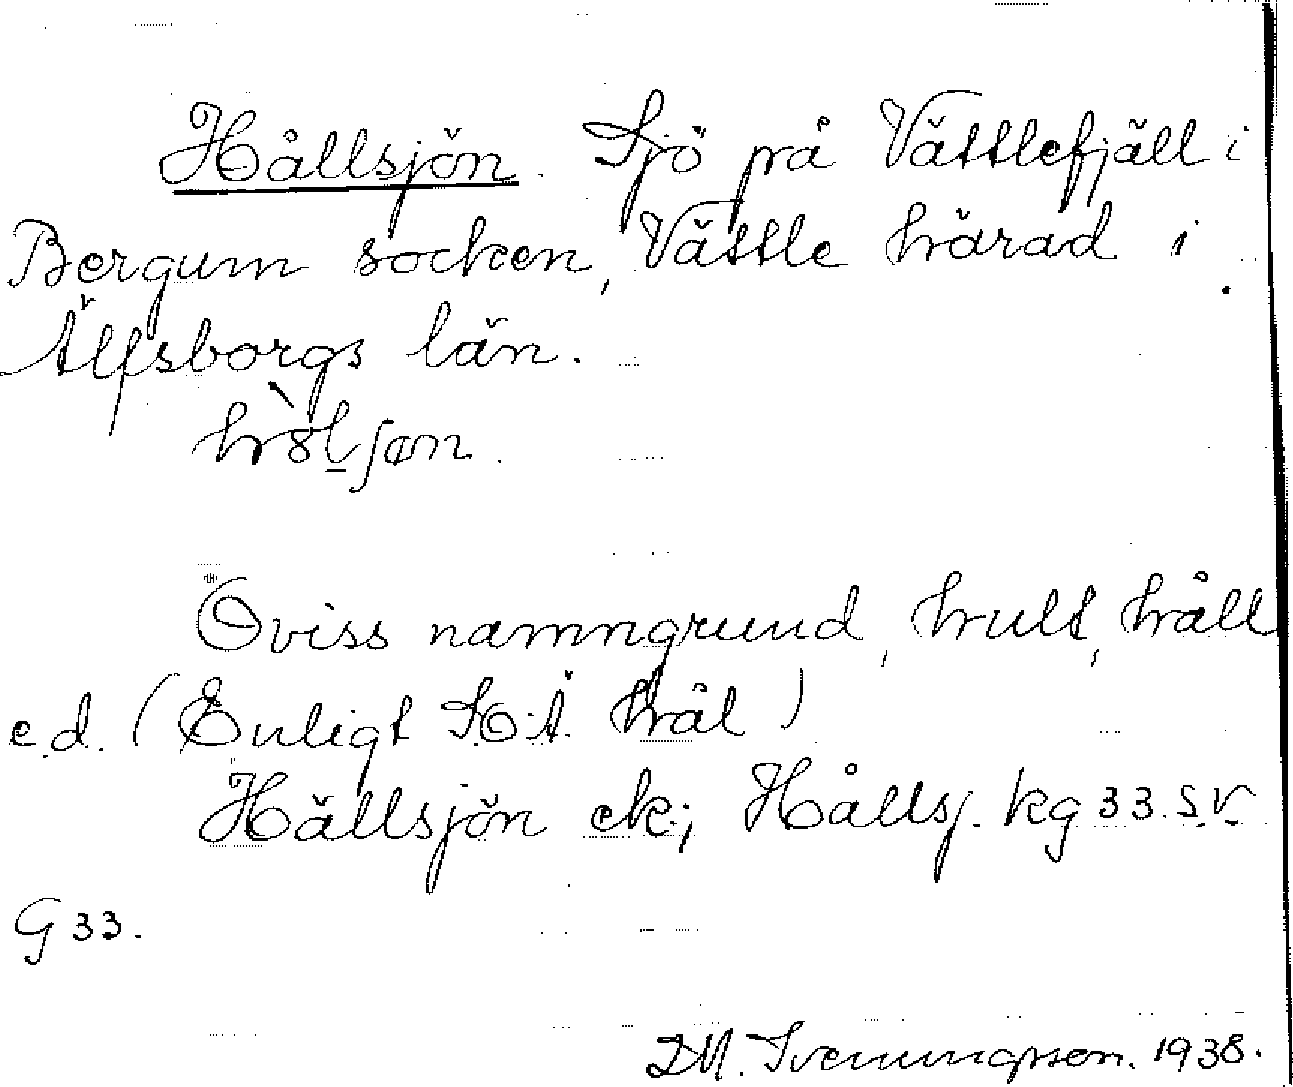 Hållsjön. Sjö på Vättlefjäll i
Bergum socken, Vättle härad i
Älfsborgs län.
Oviss namngrund, hult, håll
e.d. (Enligt S.O.Ä. hål)
Hällsjön ek; Hållsj. kg 33.S.V.
G 33.
D.M. Svenungsson. 1938.